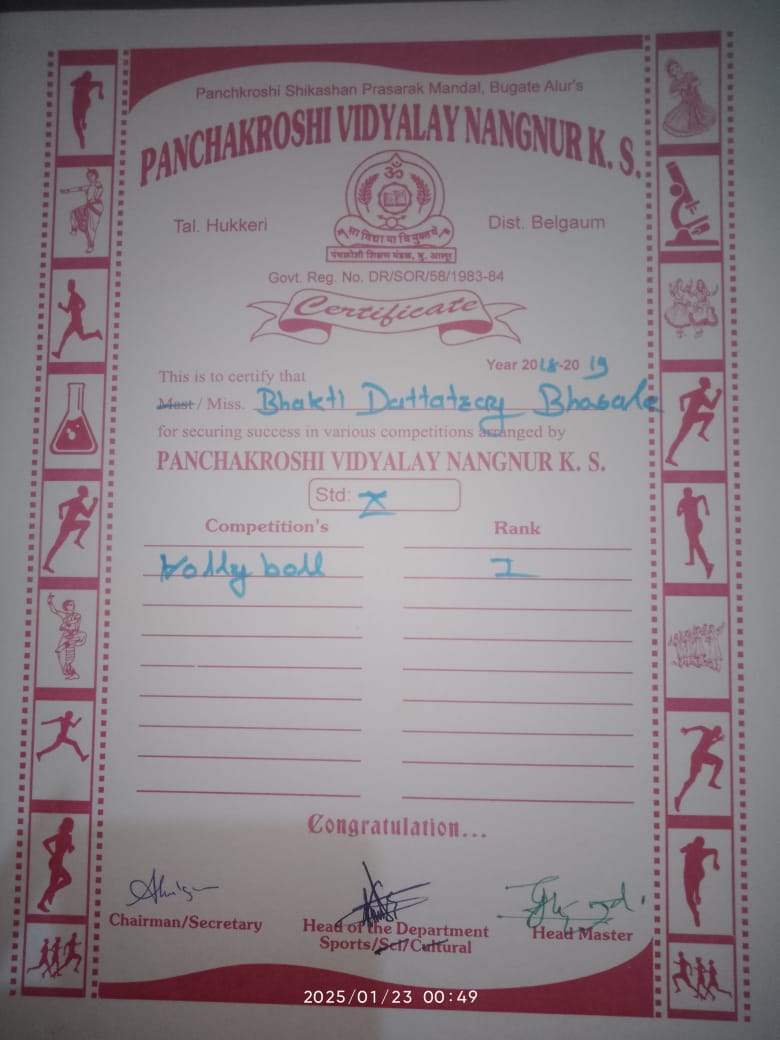 Panchkroshi Shikashan Prasarak Mandal, Bugate Alur's
PANCHAKROSHI VIDYALAY NANGNUR K. S.
ॐ
Tal. Hukkeri
Dist. Belgaum
सा विद्या या विमुक्तये
पंचक्रोशी शिक्षण मंडळ, बु. आलूर
Govt. Reg. No. DR/SOR/58/1983-84
Certificate
Year 2018-2019
This is to certify that
Mast / Miss. Bhakti Dattatray Bhosale
for securing success in various competitions arranged by
PANCHAKROSHI VIDYALAY NANGNUR K. S.
Std: X
Competition's Rank
Volly ball I
Congratulation...
Chairman/Secretary
Head of the Department
Sports/Sci/Cultural
Head Master
2025/01/23 00:49